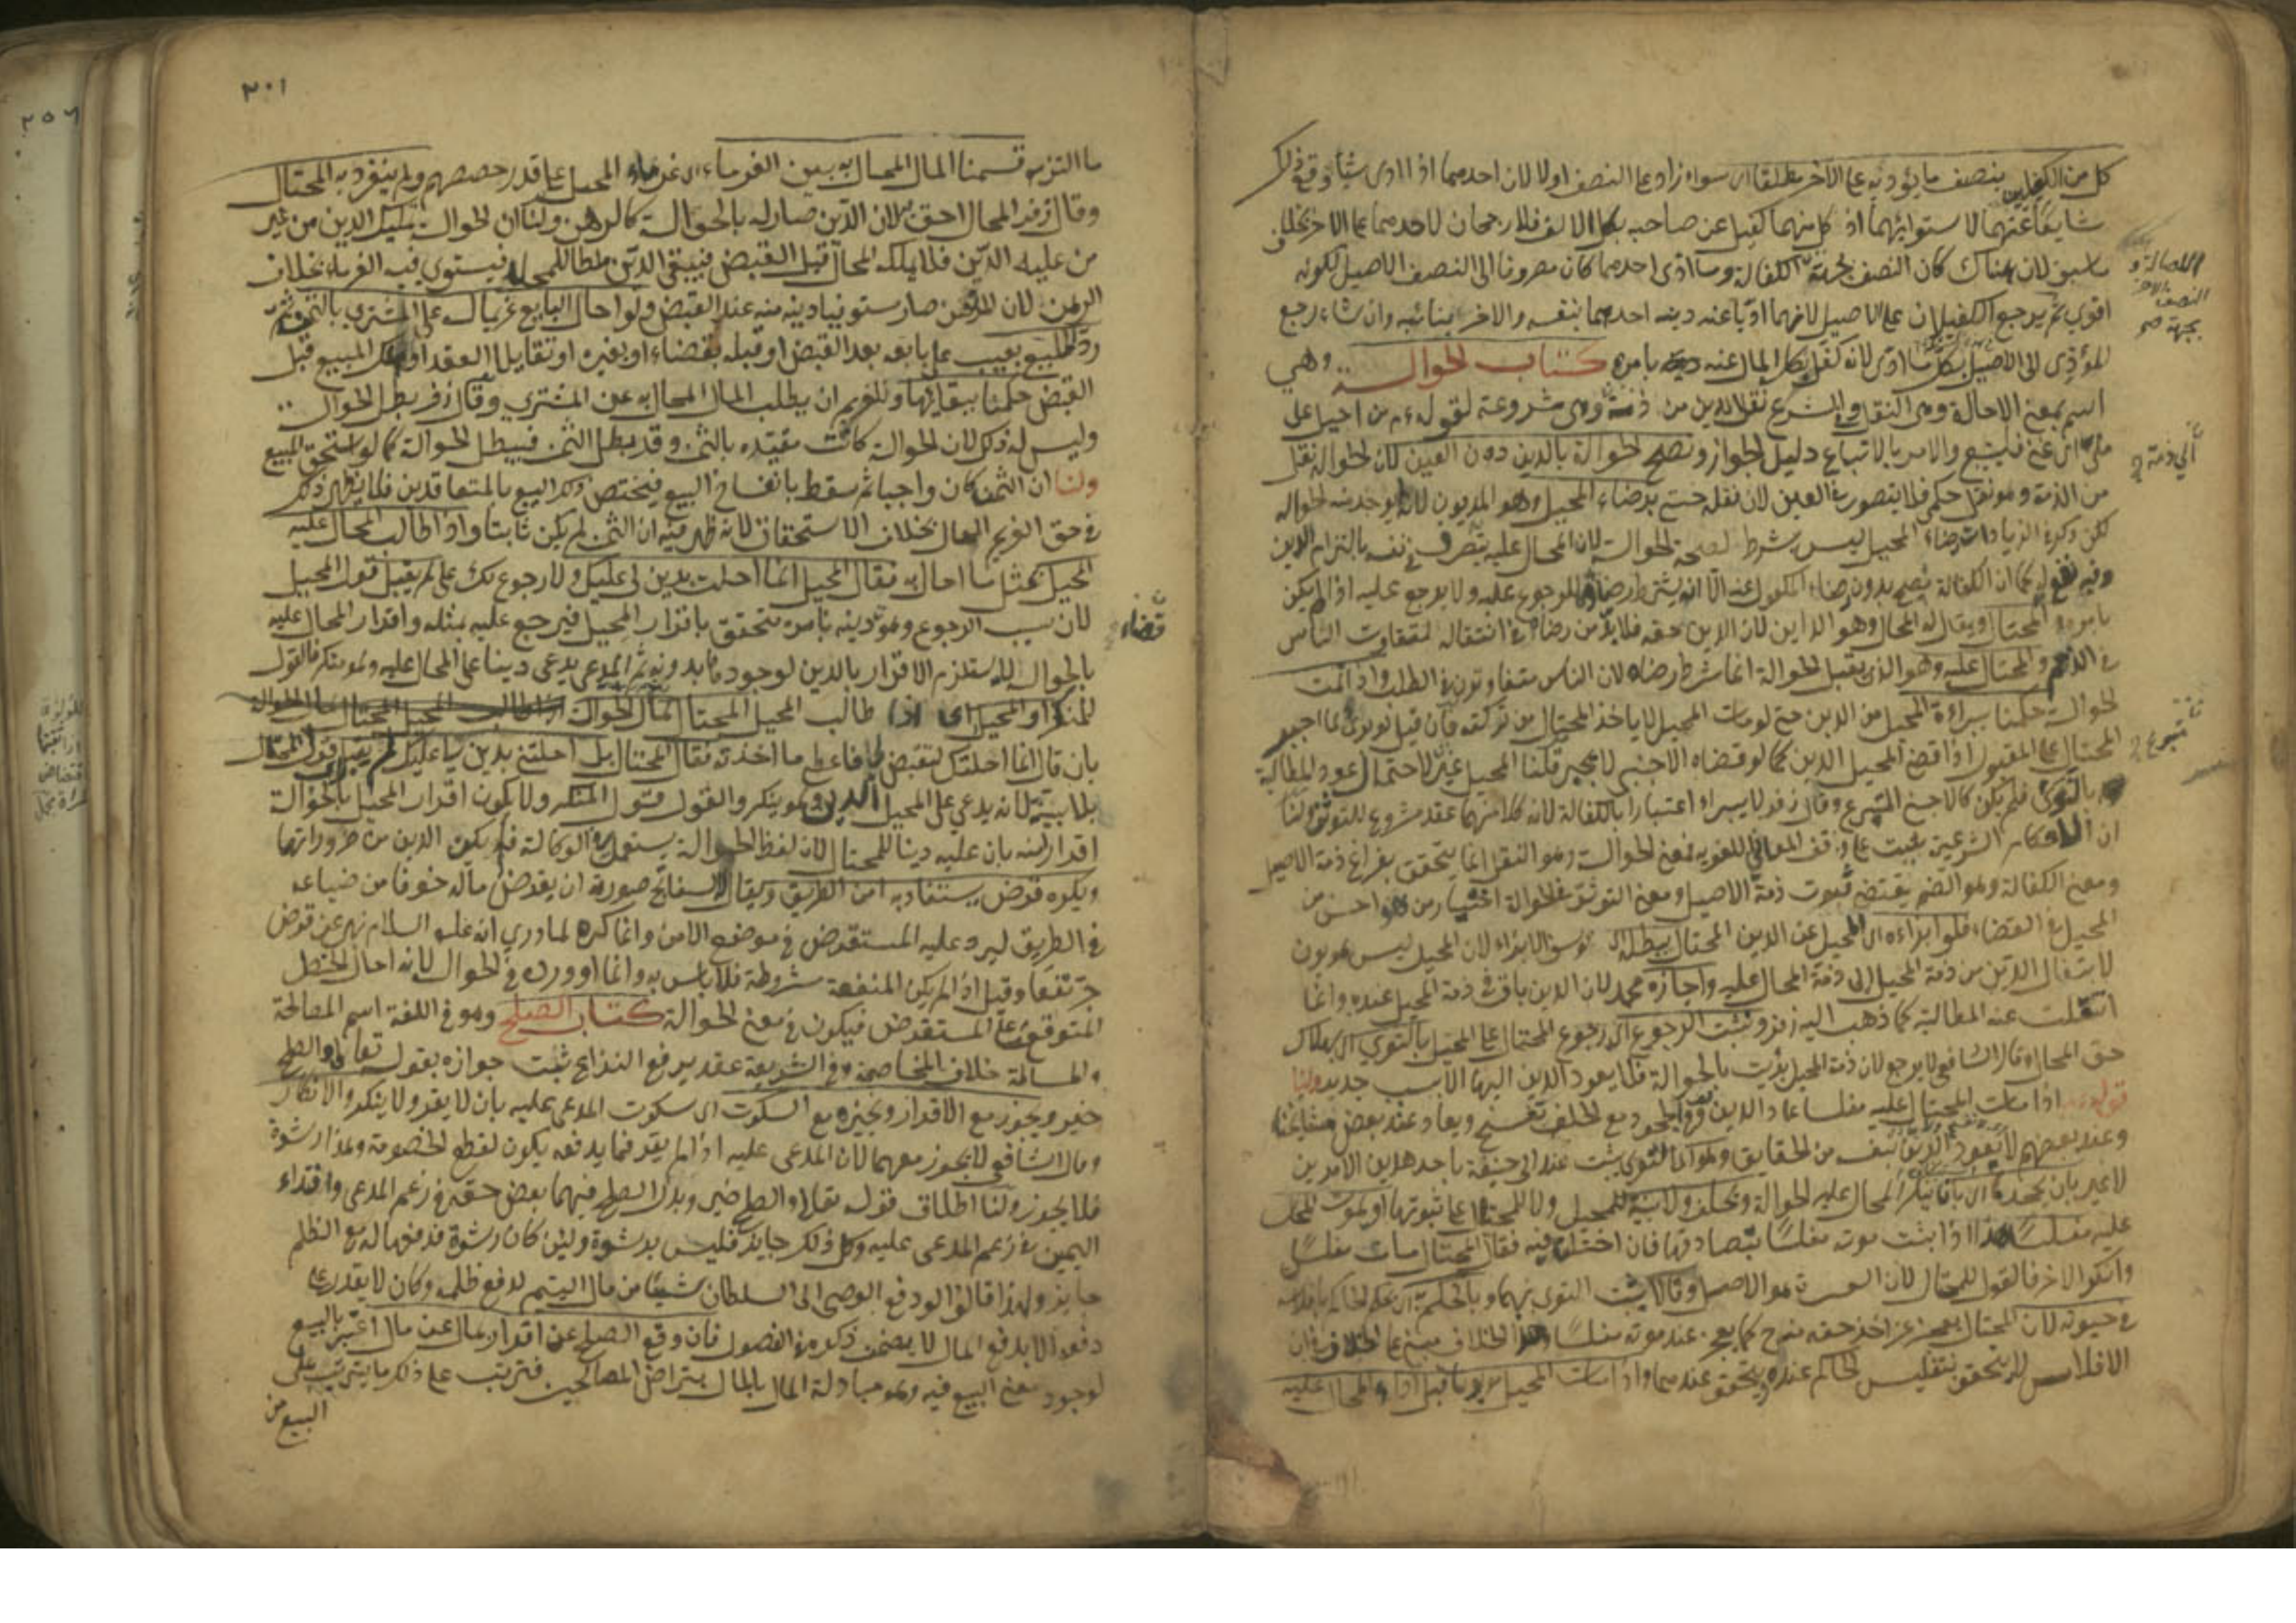 كل من الكفيلين بنصف ما يؤديه على الآخر مطلقا اى سواء زاد على النصف اولا لان احدهما اذا ادى شيئا وقع ذلك
شايعا عنهما لاستوائهما اذ كل منهما كفيل عن صاحبه بكل الالف فلا رجحان لاحدهما على الاخر بخلاف
ما سبق لان هناك كان النصف بجهة الكفالة وما ادى احدهما كان مصروفا الى النصف الاصيل لكونه
اقوى ثم يرجع الكفيلان على الاصيل لانهما اديا عنه دينه احدهما بنفسه والاخر بنائبه وان شاء رجع
المؤدى الى الاصيل بكل ما ادى لانه كفل بكل المال عنه بامره كتاب الحوالة وهي
اسم بمعنى الاحالة وهى النقل وفي الشرع نقل الدين من ذمة وهى مشروعة لقوله عم من احيل على
ملى اى غنى فليتبع والامر بالاتباع دليل الجواز وتصح الحوالة بالدين دون العين لان الحوالة نقل
من الذمة وهو نقل حكمى فلا يتصور في العين لان نقله حسى برضاء المحيل وهو المديون لانه يوجد منه الحوالة
لكن ذكر في الزيادات رضاء المحيل ليس بشرط لصحة الحوالة لان المحال عليه يتصرف في نفسه بالتزام الدين
وفيه نقول كما ان الكفالة تصح بدون رضاء المكفول عنه الا انه يشترط رضاه للرجوع عليه ولا يرجع عليه اذا لم يكن
بامره والمحتال ويقال له المحال وهو الداين لان الدين حقه فلا بد من رضاه في انتقاله لتفاوت الناس
في الذمم والمحتال عليه وهو الذى يقبل الحوالة انما شرط رضاه لان الناس متفاوتون في الطلب واذا تمت
الحوالة حكمنا ببراءة المحيل من الدين حتى لو مات المحيل لا ياخذ المحتال من تركته فان قيل لو برئ لما اجبر
المحتال على القبول اذا قضى المحيل الدين كما لو قضاه الاجنبى لا يجبر قلنا المحيل غير لاحتمال عود المطالبة
بالتوى فلم يكن كالاجنبى المتبرع وقال زفر لا يبراء اعتبارا بالكفالة لان كلا منهما عقد مشروع للتوثق لنا
ان الاحكام الشرعية يثبت على وفق المعانى اللغوية فمعنى الحوالة وهو النقل انما يتحقق بفراغ ذمة الاصيل
ومعنى الكفالة وهو الضم يقتضى ثبوت ذمة الاصيل ومعنى التوثق في الحوالة اختيار من هو احسن من
المحيل في القضاء فلو ابراءه اى المحيل عن الدين المحتال يبطله ابو يوسف اى الابراء لان المحيل ليس بمديون
لانتقال الدين من ذمة المحيل الى ذمة المحال عليه واجازه محمد لان الدين باق في ذمة المحيل عنده وانما
انتقلت عنه المطالبة كما ذهب اليه زفر ونثبت الرجوع اى رجوع المحتال على المحيل بالتوى اى بهلاك
حق المحال وقال الشافعى لا يرجع لان ذمة المحيل برئت بالحوالة فلا يعود الدين اليها الا بسبب جديد ولنا
قوله عم اذا مات المحتال عليه مفلسا عاد الدين
لا غير بان يجحده اى بان ينكر المحال عليه الحوالة ويحلف ولا بينة للمحيل ولا للمحتال على ثبوتها او يموت المحال
عليه مفلسا هذا اذا ثبت موته مفلسا بتصادقها فان اختلفا فيه فقال المحتال مات مفلسا
وانكر الاخر فالقول للمحتال لان العسرة هو الاصل وقالا يثبت التوى بهما وبالحكم اى بحكم الحاكم بافلاسه
في حيوته لان المحتال يعجز عن اخذ حقه منه ح كما يعجز عند موته مفلسا وهذا الخلاف مبنى على الخلاف في ان
الافلاس لا يتحقق بتفليس الحاكم عنده ويتحقق عندهما واذا مات المحيل مديونا قبل اداء المحال عليه
للاصالة و
النصف الاخر
بجهة صح
الى ذمة
متبرع
٢٠١
ما التزمه قسمنا المال المحال به بين الغرماء اى غرماء المحيل على قدر حصصهم ولم ينفرد به المحتال
وقال زفر المحال احق به لان الدين صار له بالحوالة كالرهن ولنا ان الحوالة تمليك الدين من غير
من عليه الدين فلا يملكه المحال قبل القبض فيبقى الدين ملكا للمحيل فيستوى فيه الغرماء بخلاف
الرهن لان المرتهن صار مستوفيا دينه منه عند القبض ولو احال البايع غريما له على المشترى بالثمن ثم
رد المبيع بعيب على بايعه بعد القبض او قبله بقضاء او بغيره او تقايلا العقد او هلك المبيع قبل
القبض حكمنا ببقائها وللغريم ان يطلب المال المحال به عن المشترى وقال زفر بطل الحوالة
وليس له ذلك لان الحوالة كانت مقيدة بالثمن وقد بطل الثمن فيبطل الحوالة كما لو استحق المبيع
ولنا ان الثمن كان واجبا ثم سقط بانفساخ البيع فيختص ذلك البيع بالمتعاقدين فلا يظهر ذلك
في حق الغريم المحال بخلاف الاستحقاق لانه ظهر فيه ان الثمن لم يكن ثابتا واذا طالب المحال عليه
المحيل بمثل ما احال به فقال المحيل انما احلت بدين لى عليك ولا رجوع لك على لم يقبل قول المحيل
لان سبب الرجوع وهو تاديته بامره متحقق باقرار المحيل فيرجع عليه بمثله واقرار المحال عليه
بالحوالة لا يستلزم الاقرار بالدين لوجودها بدونه ثم المحيل يدعى دينا على المحال عليه وهو منكر فالقول
للمنكر او المحيل اى اذا طالب المحيل المحتال بمال الحوالة
بان قال انما احلتك لتقبض لى فاعط ما اخذته فقال المحتال بل احلتنى بدين لى عليك لم يقبل قول المحتال
بلا بينة لانه يدعى على المحيل الدين وهو ينكر والقول قول المنكر ولا يكون اقرار المحيل بالحوالة
اقرارا منه بان عليه دينا للمحتال لان لفظ الحوالة يستعمل في الوكالة فلم يكن الدين من ضروراتها
ويكره قرض يستفاد به امن الطريق ويقال له السفاتج صورته ان يقرض ماله خوفا من ضياعه
في الطريق ليرد عليه المستقرض في موضع الامن وانما كره لما روى انه عليه السلام نهى عن قرض
جر نفعا وقيل اذا لم يكن المنفعة مشروطة فلا باس به وانما اورده في الحوالة لانه احال الخطر
المتوقع على المستقرض فيكون في معنى الحوالة كتاب الصلح وهو في اللغة اسم المصالحة
والمسالمة خلاف المخاصمة وفي الشريعة عقد يرفع النزاع ثبت جوازه بقوله تعالى والصلح
خير ويجوز مع الاقرار ونجيزه مع السكوت اى سكوت المدعى عليه بان لا يقر ولا ينكر والانكار
وقال الشافعى لا يجوز معهما لان المدعى عليه اذا لم يقر فما يدفعه يكون لقطع الخصومة وهذا رشوة
فلا يجوز ولنا اطلاق قوله تعالى والصلح خير وبدل الصلح فيهما بعض حقه في زعم المدعى وافتداء
اليمين في زعم المدعى عليه وكل ذلك جايز فليس برشوة ولئن كان رشوة فدفعها له مع الظلم
جايز ولهذا قالوا لو دفع الوصى الى السلطان شيئا من مال اليتيم لدفع ظلمه وكان لا يقدر على
دفعه الا بدفع المال لا يضمن ذكره في الفصول فان وقع الصلح عن اقرار بمال عن مال اعتبر بالبيع
لوجود معنى البيع فيه وهو مبادلة المال بالمال بتراضى المصالحين فترتب على ذلك ما يترتب على
البيع من
قضاء
٢٥٦